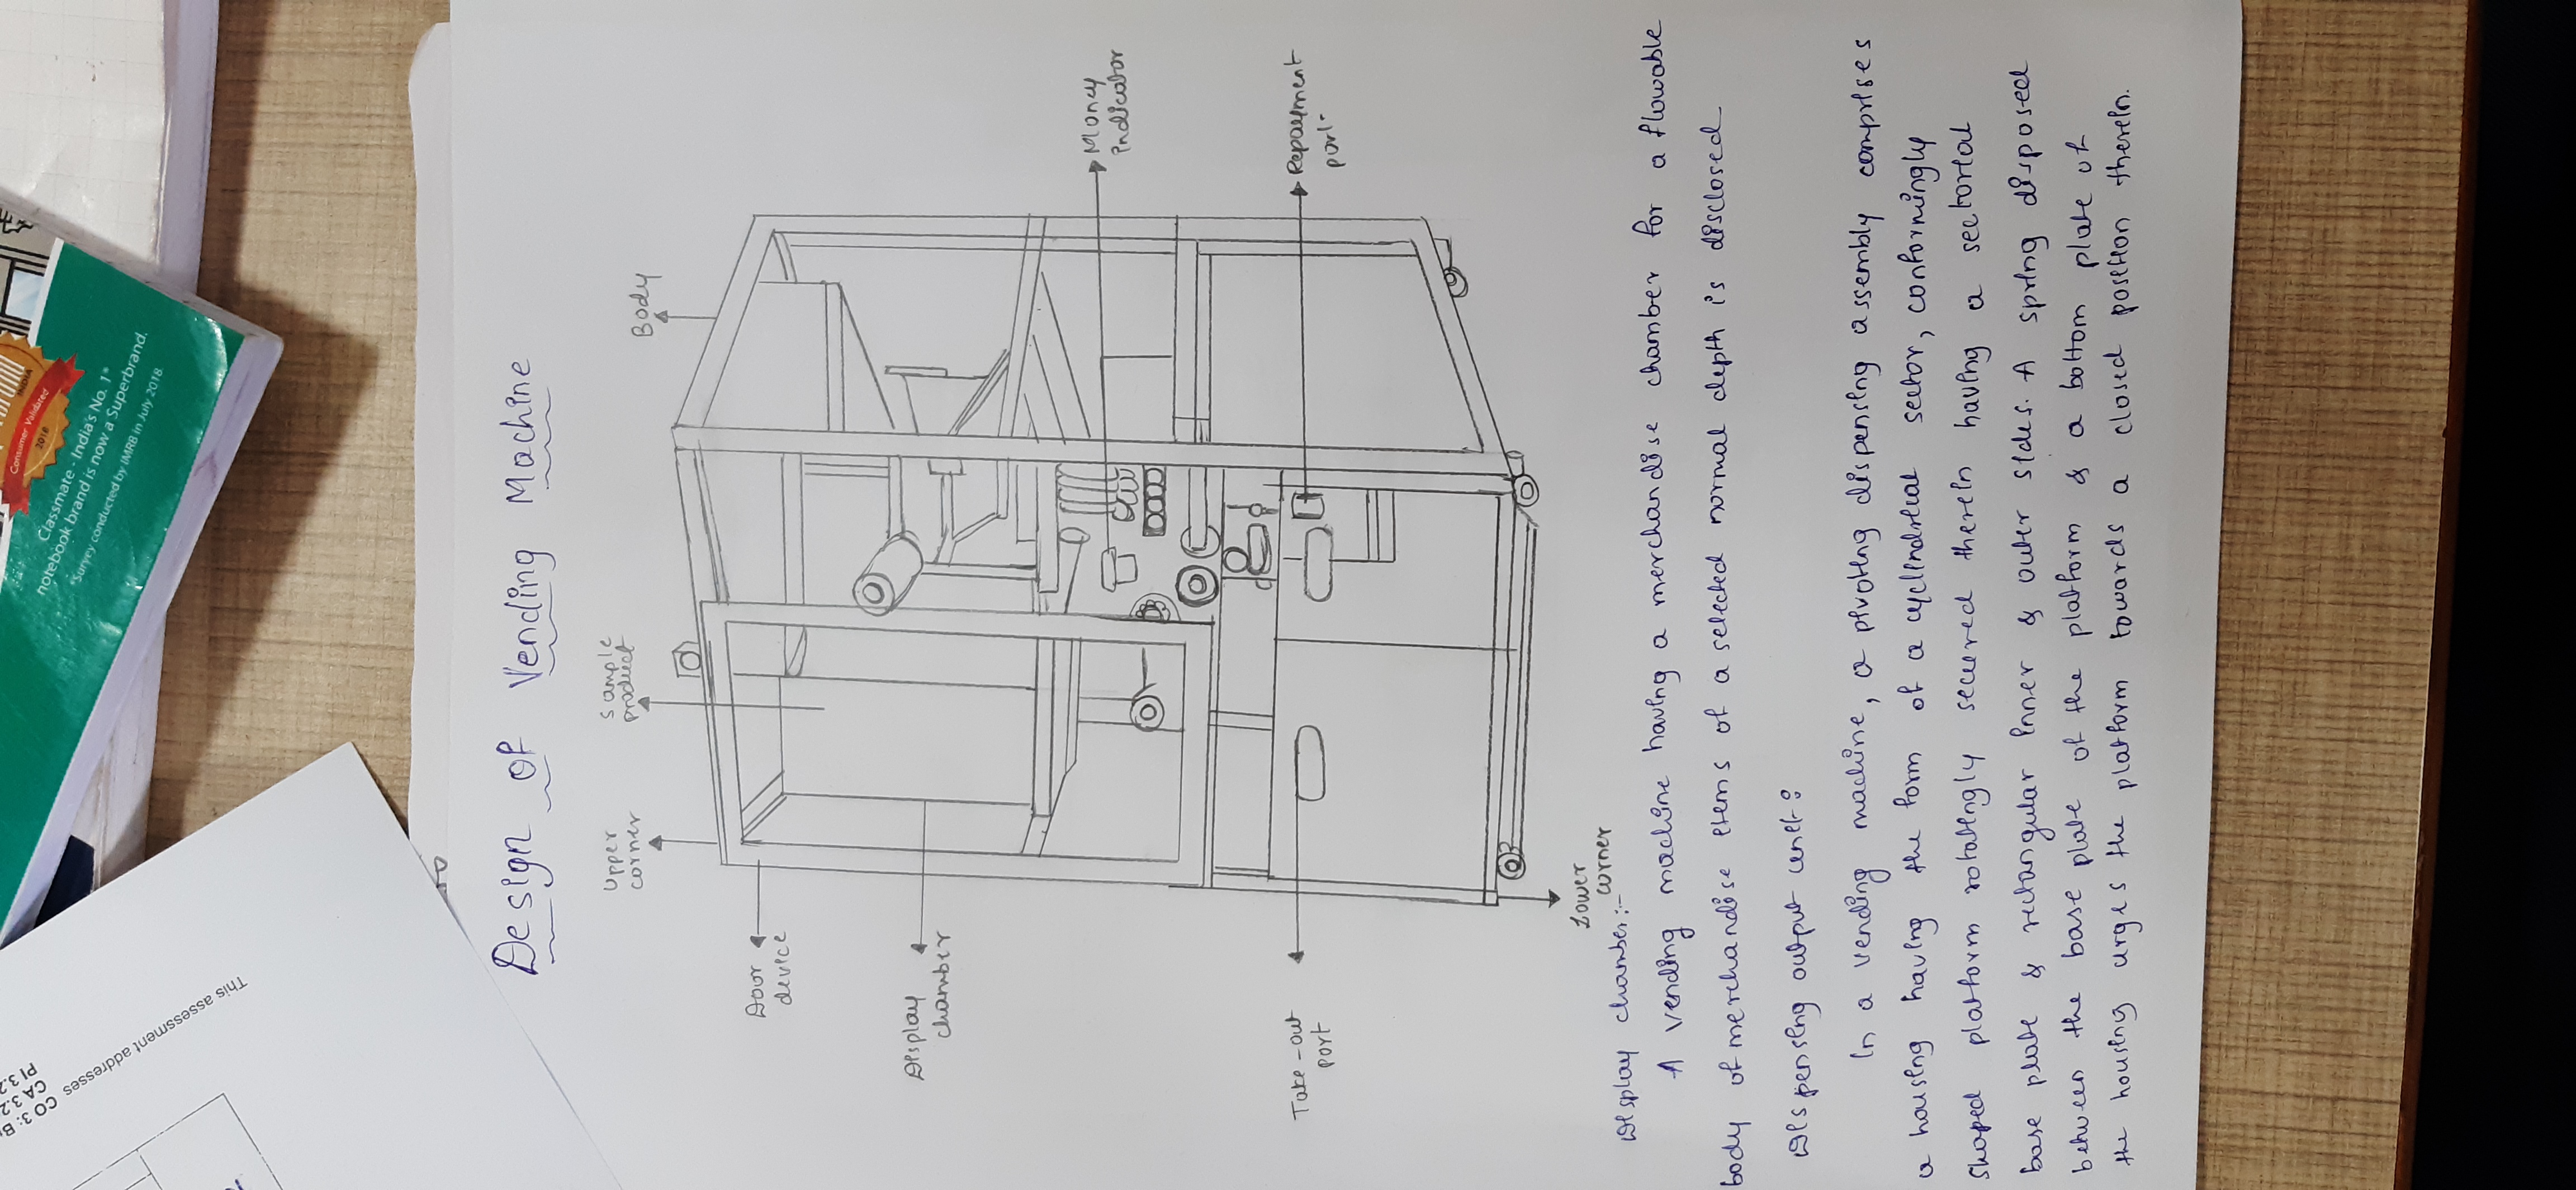 This assessment addresses CO 3: 
CA 3.2
PI 3.2
INDIA
Consumer Validated
2018
Classmate - India's No. 1*
notebook brand is now a Superbrand.
*Survey conducted by IMRB in July 2018.
Design of Vending Machine
Upper
corner
Sample
product
Body
Door
device
Display
chamber
Money
indicator
Take-out
port
Repayment
port
Lower
corner
Display chamber:-
A vending machine having a merchandise chamber for a flowable
body of merchandise items of a selected normal depth is disclosed
Dispensing output unit:
In a vending machine, a pivoting dispensing assembly comprises
a housing having the form of a cyclindrical sector, conformingly
shaped platform rotatingly secured therein having a sectorial
base plate & rectangular inner & outer sides. A spring disposed
between the base plate of the platform & a bottom plate of
the housing urges the platform towards a closed position therein.